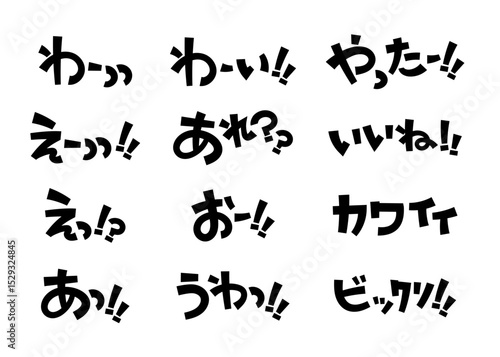 わーっっ わーい!! やったー!!
えーっっ!! あれ?っ いいね!!
えっ!? おー!! カワイイ
あっ!! うわっ!! ビックリ!!
Adobe Stock | #1529324845